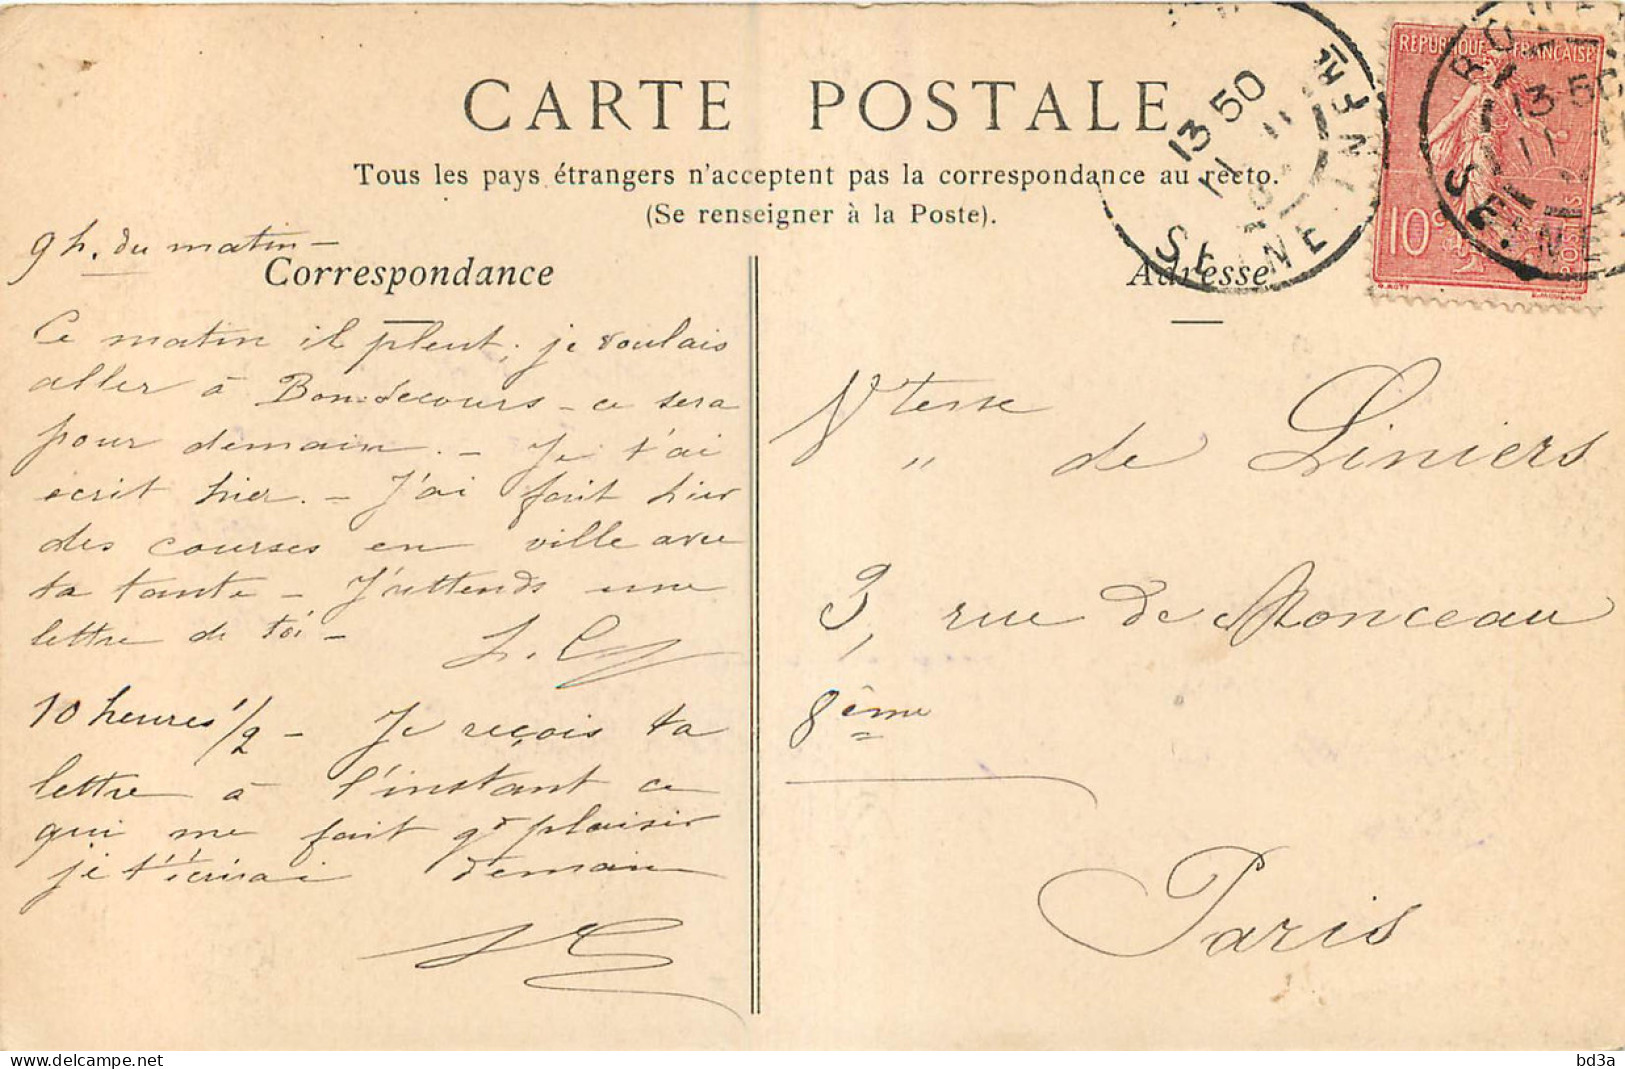 CARTE POSTALE
Tous les pays étrangers n'acceptent pas la correspondance au recto.
(Se renseigner à la Poste).
9 h. du matin –
Correspondance
Ce matin il pleut, je voulais
aller à Bon-Secours – ce sera
pour demain. – Je t'ai
écrit hier. – J'ai fait hier
des courses en ville avec
ta tante – J'attends une
lettre de toi –
10 heures 1/2 – Je reçois ta
lettre à l'instant ce
qui me fait gd plaisir
je t'écrirai demain
Adresse
Vtesse de Liniers
3, rue de Monceau
8ème
Paris
REPUBLIQUE FRANÇAISE
10c
POSTES
O. ROTY
E. MOUCHON
13 50
SEINE INFRE
ROUEN
13 50
11
SEINE INFRE
bd3a